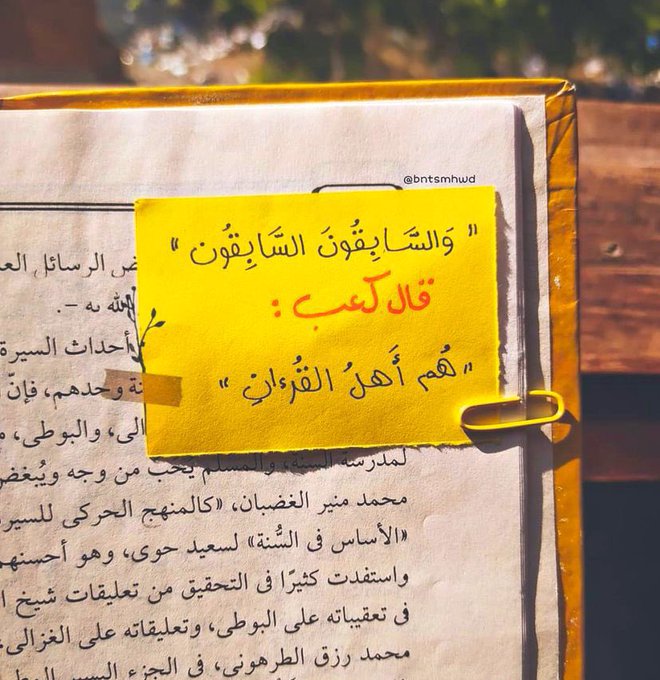 @bntsmhwd
" وَالسَّابِقُونَ السَّابِقُون "
قال كعب :
" هُم أَهلُ القُرءانِ "
ض الرسائل العا
الله به –.
أحداث السيرة
ة وحدهم، فإنّ
الى، والبوطى، م
لمدرسة السنة، والمسلم يحب من وجه ويُبغض
محمد منير الغضبان، «كالمنهج الحركى للسير
«الأساس فى السُّنة» لسعيد حوى، وهو أحسنهم
واستفدت كثيرًا فى التحقيق من تعليقات شيخ ا
فى تعقيباته على البوطى، وتعليقاته على الغزالى،
محمد رزق الطرهونى، فى الجزء اليسير